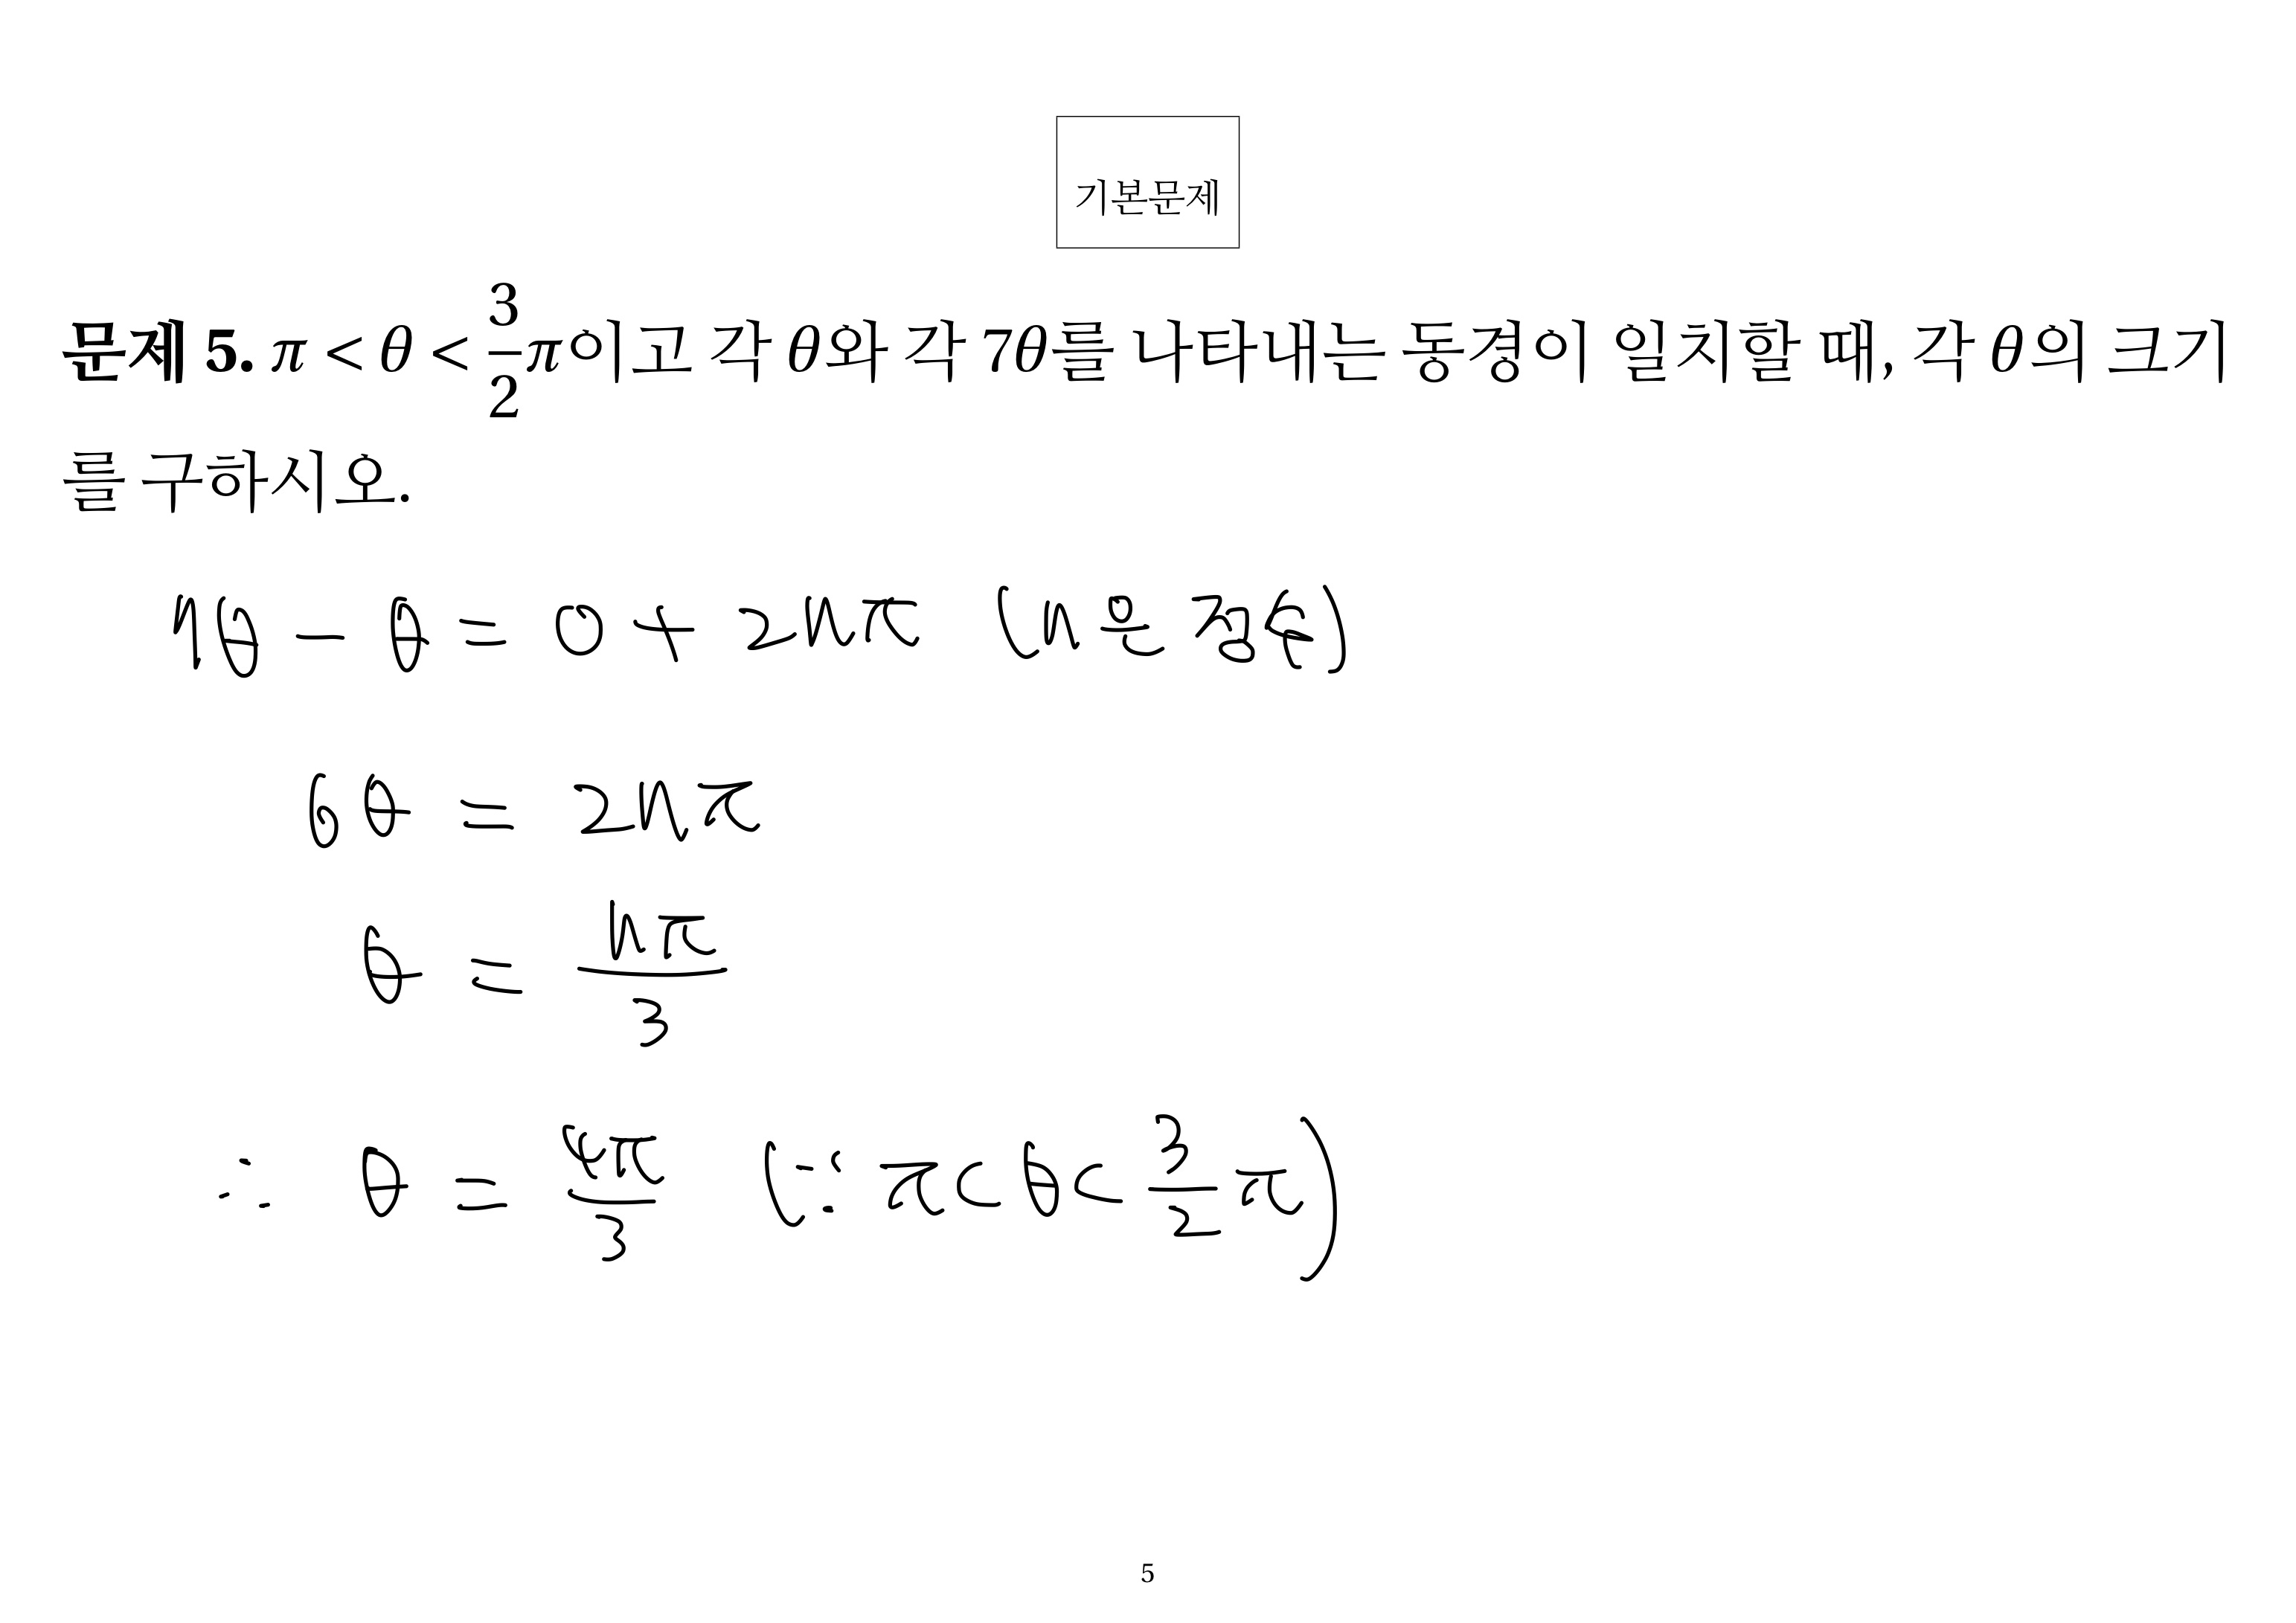 기본문제
문제 5. π < θ < 3/2 π이고 각 θ와 각 7θ를 나타내는 동경이 일치할 때, 각 θ의 크기
를 구하시오.
7θ - θ = 0 + 2nπ (n은 정수)
6θ = 2nπ
θ = nπ/3
∴ θ = 4π/3 (∵ π < θ < 3/2 π)
5